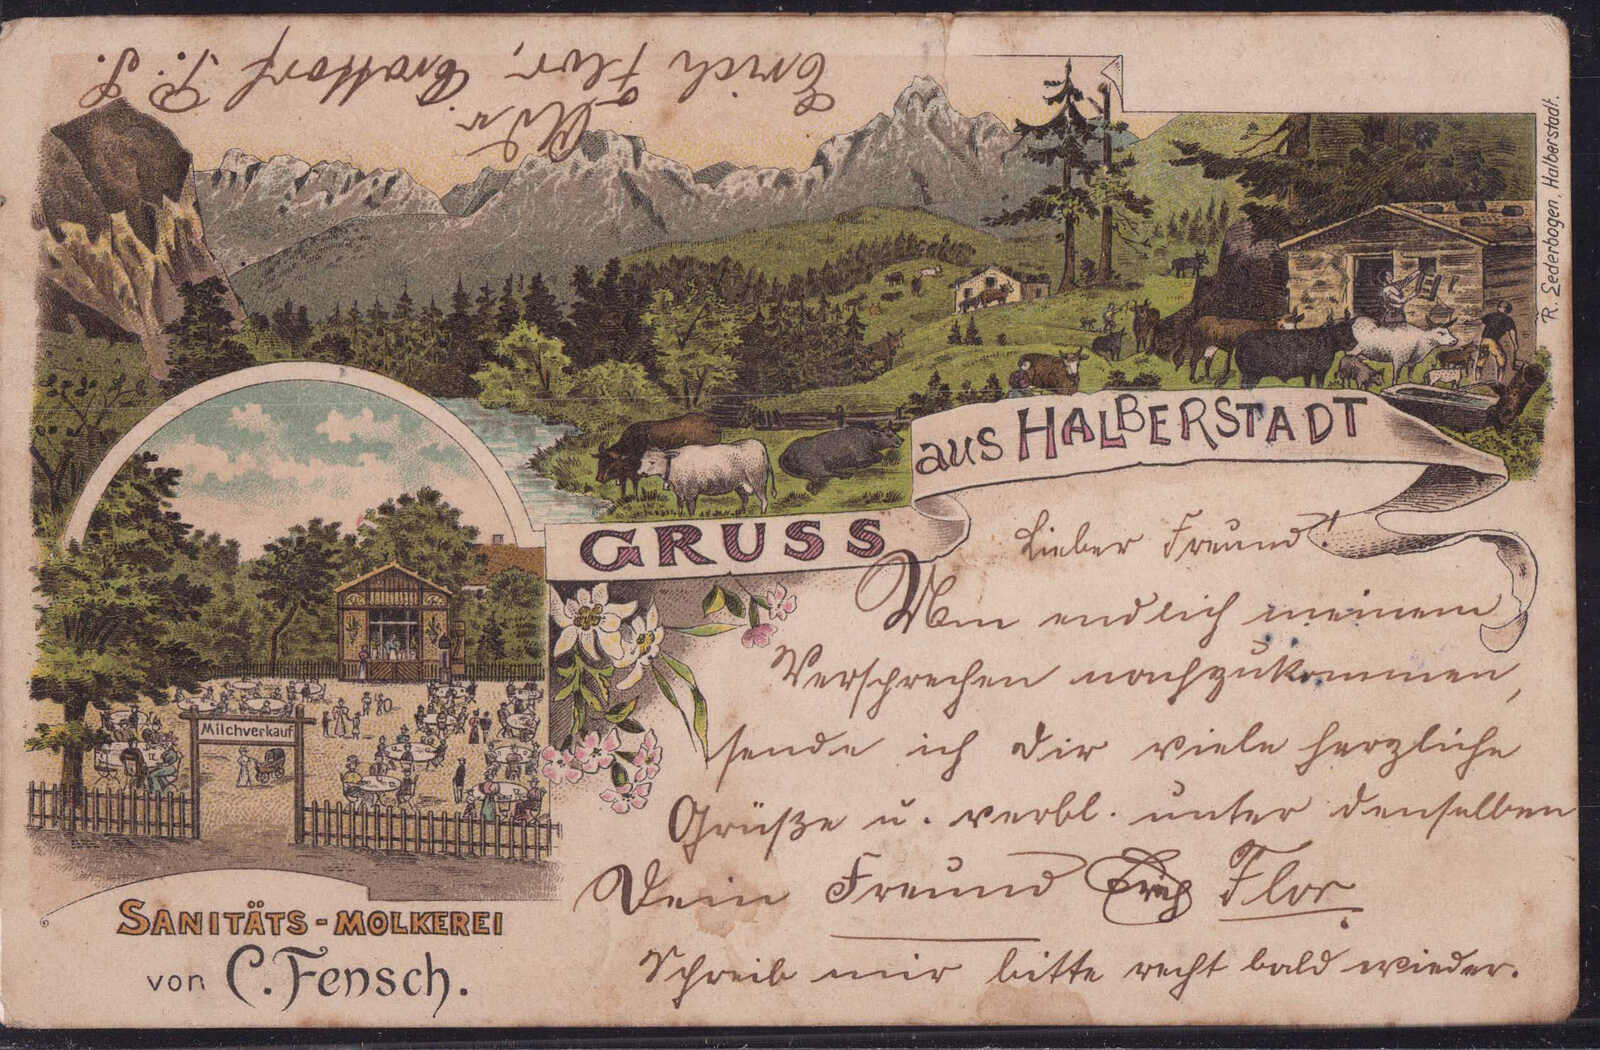 Erich Flor, Crottorf P. S.
Adr.
R. Lederbogen, Halberstadt.
GRUSS aus HALBERSTADT
Lieber Freund!
Um endlich meinem
Versprechen nachzukommen,
sende ich dir viele herzliche
Grüße u. verbl. unter denselben
Dein Freund Erich Flor
Schreib mir bitte recht bald wieder.
Milchverkauf
SANITÄTS-MOLKEREI
von C. Fensch.